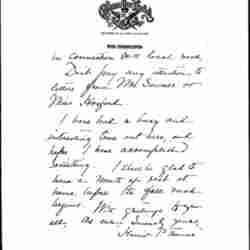 in connection with local work,
Don't pay any attention to
letters from Mrs. Sumner or
Miss Hayford.
I have had a busy and
interesting time out here, and
hope I have accomplished
something. I shall be glad to
have a month of rest at
home, before the fall work
begins. With greetings to you
all, As ever, Sincerely yours,